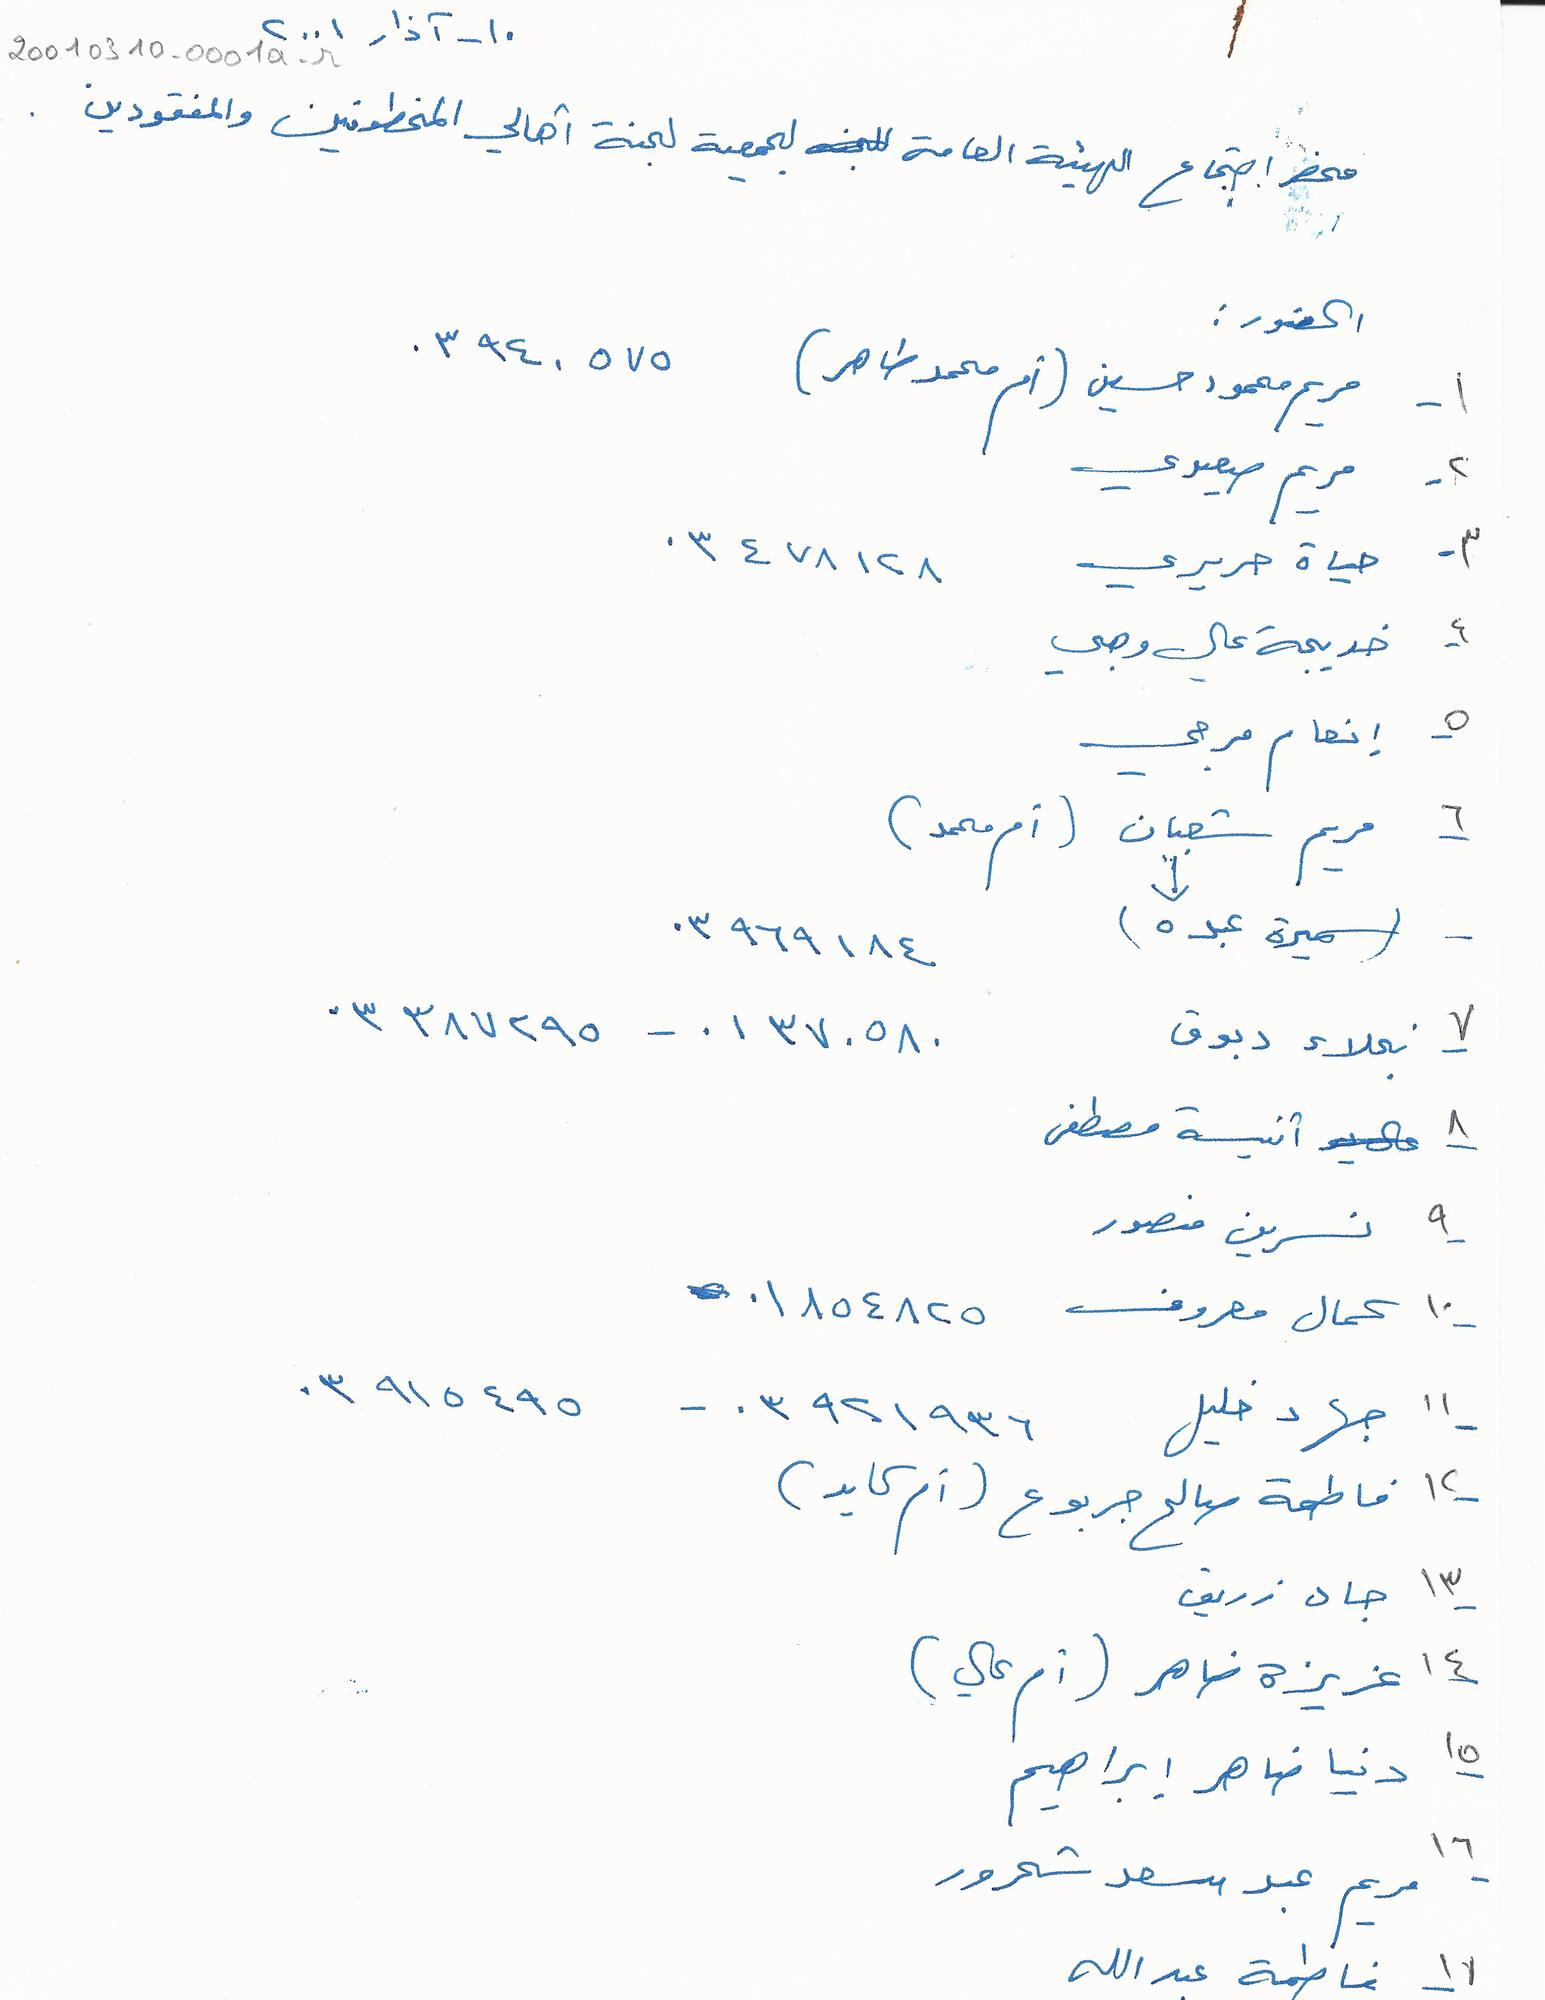 ١٠ - آذار ٢٠٠١
20010310-0001a-r
محضر اجتماع الهيئة العامة لجمعية لجنة أهالي المخطوفين والمفقودين .
الحضور :
١- مريم محمود حسين (أم محمد طاهر) ٠٣ ٩٤٠٥٧٥
٢- مريم صعيدي
٣- حياة حريري ٠٣ ٤٧٨١٢٨
٤- خديجة علي وهبي
٥- إنعام مرعي
٦- مريم شعبان (أم محمد)
- (سميرة عبده) ٠٣ ٩٦٩١٨٤
٧- نجلاء دبوق ٠١ ٣٧٠٥٨٠ - ٠٣ ٣٨٧٢٩٥
٨- أنيسة مصطفى
٩- نسرين منصور
١٠- كمال معروف ٠١ ٨٥٤٨٢٥
١١- جهاد خليل ٠٣ ٩٢١٩٣٦ - ٠٣ ٩١٥٤٩٥
١٢- فاطمة صالح جربوع (أم كايد)
١٣- جان زريق
١٤- عزيزة ضاهر (أم علي)
١٥- دنيا ضاهر إبراهيم
١٦- مريم عبد سعد شحرور
١٧- فاطمة عبد الله